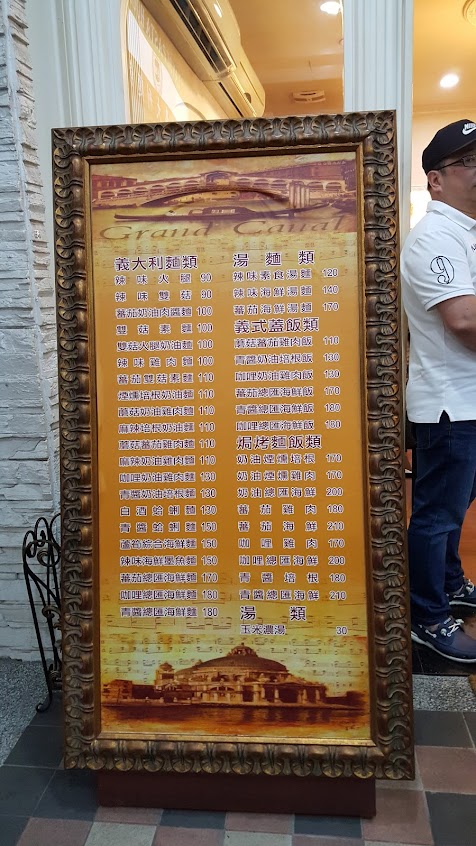 Grand Canal
義大利麵類
辣味火腿 90
辣味雙菇 90
蕃茄奶油肉醬麵 100
雙菇素麵 100
雙菇火腿奶油麵 100
辣味雞肉麵 100
蕃茄雙菇素麵 110
煙燻培根奶油麵 110
蘑菇奶油雞肉麵 110
麻辣培根奶油麵 110
蘑菇蕃茄雞肉麵 110
麻辣奶油雞肉麵 110
咖哩奶油雞肉麵 130
青醬奶油培根麵 130
白酒蛤蜊麵 130
青醬蛤蜊麵 150
蘆筍綜合海鮮麵 150
辣味海鮮墨魚麵 150
蕃茄總匯海鮮麵 170
咖哩總匯海鮮麵 180
青醬總匯海鮮麵 180
湯麵類
辣味素食湯麵 120
辣味海鮮湯麵 140
蕃茄海鮮湯麵 170
義式蓋飯類
蘑菇蕃茄雞肉飯 110
青醬奶油培根飯 130
咖哩奶油雞肉飯 130
蕃茄總匯海鮮飯 170
青醬總匯海鮮飯 180
咖哩總匯海鮮飯 180
焗烤麵飯類
奶油煙燻培根 170
奶油煙燻雞肉 170
奶油總匯海鮮 200
蕃茄雞肉 180
蕃茄海鮮 210
咖哩雞肉 170
咖哩總匯海鮮 200
青醬培根 180
青醬總匯海鮮 210
湯類
玉米濃湯 30
9